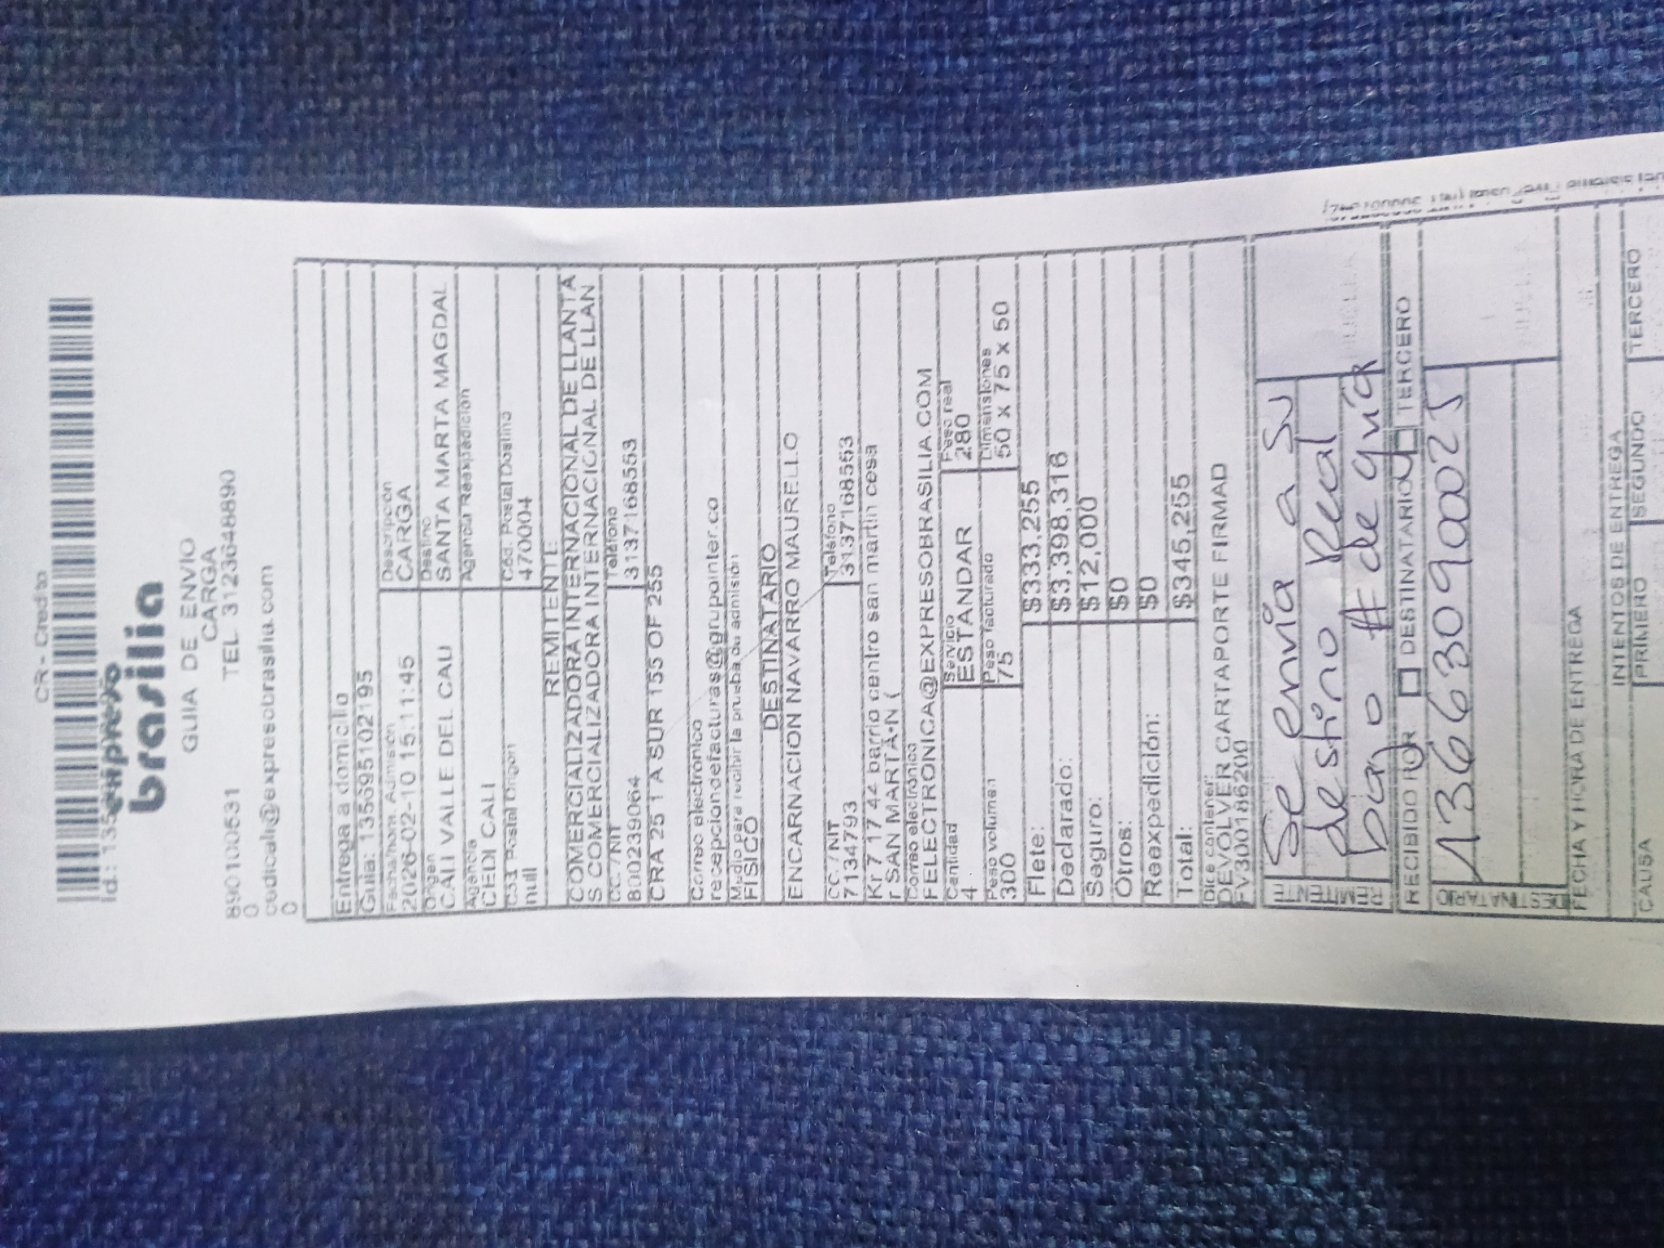 CR - Credito
expreso
brasilia
GUIA DE ENVIO
CARGA
890100531 TEL 3123648890
0
cedicali@expresobrasilia.com
0
Entrega a domicilio
Guia: 135695102195
Fecha/hora Admisión Descripción
2026-02-10 15:11:45 CARGA
Origen Destino
CALI VALLE DEL CAU SANTA MARTA MAGDAL
Agencia Agencia Reexpedición
CEDI CALI
Cód. Postal Origen Cód. Postal Destino
null 470004
REMITENTE
COMERCIALIZADORA INTERNACIONAL DE LLANTA
S COMERCIALIZADORA INTERNACIONAL DE LLAN
CC / NIT Teléfono
800239064 3137168553
CRA 25 1 A SUR 155 OF 255
Correo electrónico
recepciondefacturas@grupointer.co
Medio para recibir la prueba de admisión
FÍSICO
DESTINATARIO
ENCARNACION NAVARRO MAURELLO
CC / NIT Teléfono
7134793 3137168553
Kr 7 17 42 barrio centro san martin cesa
r SAN MARTA-N (
Correo electrónico
FELECTRONICA@EXPRESOBRASILIA.COM
Cantidad Servicio Peso real
4 ESTANDAR 280
Peso volumen Peso facturado Dimensiones
300 75 50 x 75 x 50
Flete: $333,255
Declarado: $3,398,316
Seguro: $12,000
Otros: $0
Reexpedición: $0
Total: $345,255
Dice contener:
DEVOLVER CARTAPORTE FIRMAD
FV3300186200
REMITENTE
Se envia a su
destino Real
bajo # de guia
RECIBIDO POR DESTINATARIO TERCERO
DESTINATARIO
136630900025
FECHA Y HORA DE ENTREGA
INTENTOS DE ENTREGA
CAUSA PRIMERO SEGUNDO TERCERO